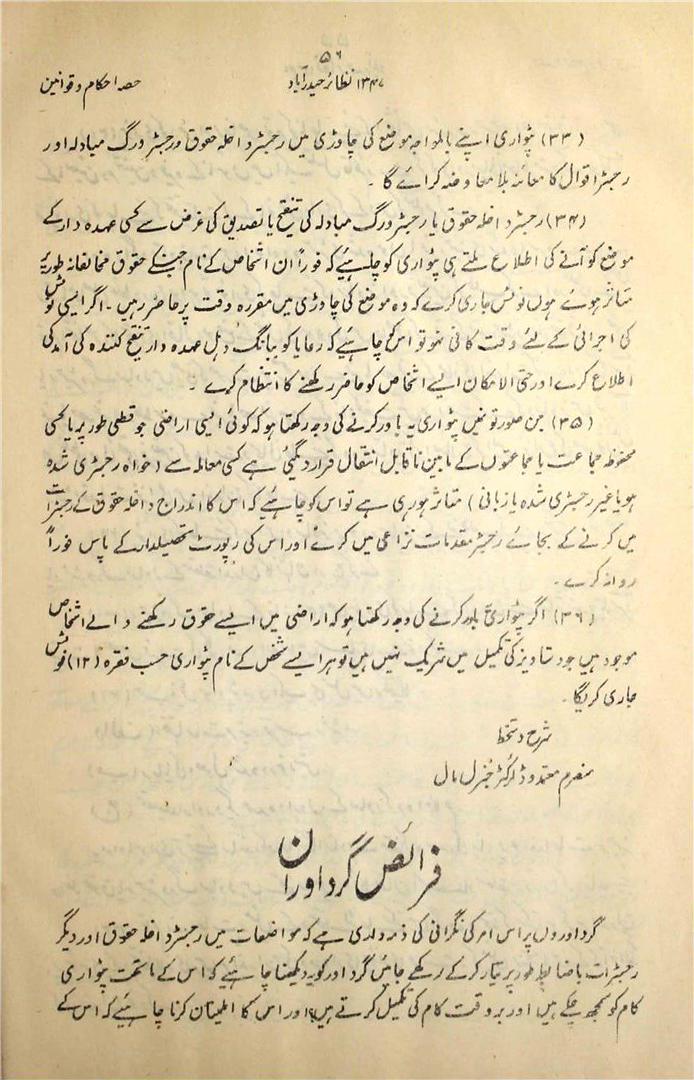 ۵۶
۱۳۴۷ نظائر حیدرآباد
حصہ احکام و قوانین
(۳۳) پٹواری اپنے بالمواجہ موضع کی چاوڑی میں رجسٹر داخلہ حقوق و رجسٹر ورگ مبادلہ اور
رجسٹر اقوال کا معائنہ بلا معاوضہ کرائے گا ۔
(۳۴) رجسٹر داخلہ حقوق یا رجسٹر ورگ مبادلہ کی تنقیح یا تصدیق کی غرض سے کسی عہدہ دار کے
موضع کو آنے کی اطلاع ملتے ہی پٹواری کو چاہئے کہ فوراً ان اشخاص کے نام جنکے حقوق مخالفانہ طور پر
متاثر ہوئے ہوں نوٹس جاری کرے کہ وہ موضع کی چاوڑی میں مقررہ وقت پر حاضر رہیں ۔ اگر ایسی نوٹس
کی اجرائی کے لئے وقت کافی نہو تو اس کو چاہئے کہ رعایا کو ببانگ دہل عہدہ دار تنقیح کنندہ کی آمد کی
اطلاع کرے اور حتی الامکان ایسے اشخاص کو حاضر رکھنے کا انتظام کرے ۔
(۳۵) جن صورتونمیں پٹواری یہ باور کرنے کی وجہ رکھتا ہو کہ کوئی ایسی اراضی جو قطعی طور پر یا کسی
محفوظ جماعت یا جماعتوں کے مابین ناقابل انتقال قرار دیگئی ہے کسی معاملہ سے (خواہ رجسٹری شدہ
ہو یا غیر رجسٹری شدہ یا زبانی) متاثر ہو رہی ہے تو اس کو چاہئے کہ اس کا اندراج داخلہ حقوق کے رجسٹرات
میں کرنے کے بجائے رجسٹر مقدمات نزاعی میں کرے اور اس کی رپورٹ تحصیلدار کے پاس فوراً
روانہ کرے ۔
(۳۶) اگر پٹواری باور کرنے کی وجہ رکھتا ہو کہ اراضی میں ایسے حقوق رکھنے والے اشخاص
موجود ہیں جو دستاویز کی تکمیل میں شریک نہیں ہیں تو ہر ایسے شخص کے نام پٹواری حسب فقرہ (۱۲) نوٹس
جاری کریگا ۔
شرح دستخط
منصرم معتمد و ڈائرکٹر جنرل مال
فرائض گرداوران
گرداوروں پر اس امر کی نگرانی کی ذمہ داری ہے کہ مواضعات میں رجسٹر داخلہ حقوق اور دیگر
رجسٹرات باضابطہ طور پر تیار کر کے رکھے جائیں گرداور کو یہ دیکھنا چاہئے کہ اس کے ماتحت پٹواری
کام کو سمجھ چکے ہیں اور بر وقت کام کی تکمیل کرتے ہیں اور اس کا اطمینان کرنا چاہئے کہ اس کے